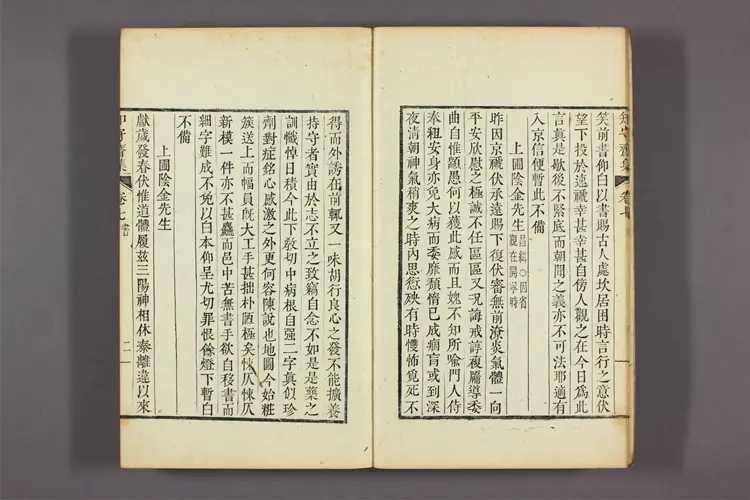 笑前書仰白以書賜古人處坎居困時言行之意伏
望下投於遠禠幸甚幸甚自傍人觀之在今日爲此
言眞是歇後不緊底而朝聞之義亦不可法耶適有
入京信便暫此不備
上圃陰金先生
昌緝○因省
觀在開寧時
昨因京禠伏承遠賜下復伏審無前潦炎氣體一向
平安欣慰之極誠不任區區又況誨戒諄複屬導委
曲自惟顓愚何以獲此感而且媿不知所喩門人侍
奉粗安身亦免大病而委靡頹惰已成痼肓或到深
夜淸朝神氣稍爽之時內思愆殃有時㥪怖覓死不
得而外誘在前輒又一味胡行良心之發不能擴養
持守者實由於志不立之致竊自念不如是是藥之
訓懺悼日積今此下敎切中病根自强二字眞似珍
劑對症銘心感激之外更何容陳說也地圖今始粧
簇送上而幅員旣大工手甚拙朴陋極矣悚仄悚仄
新模一件亦不甚麤而邑中苦無書手欲自移書而
細字難成不免以白本仰呈尤切罪恨餘燈下暫白
不備
上圃陰金先生
獻歲發春伏惟道體履玆三陽神相休泰離違以來
卷七
書
二
卷七
一